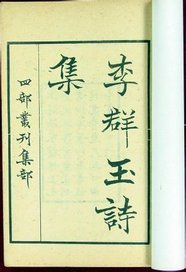 李群玉詩
集
四部叢刊集部